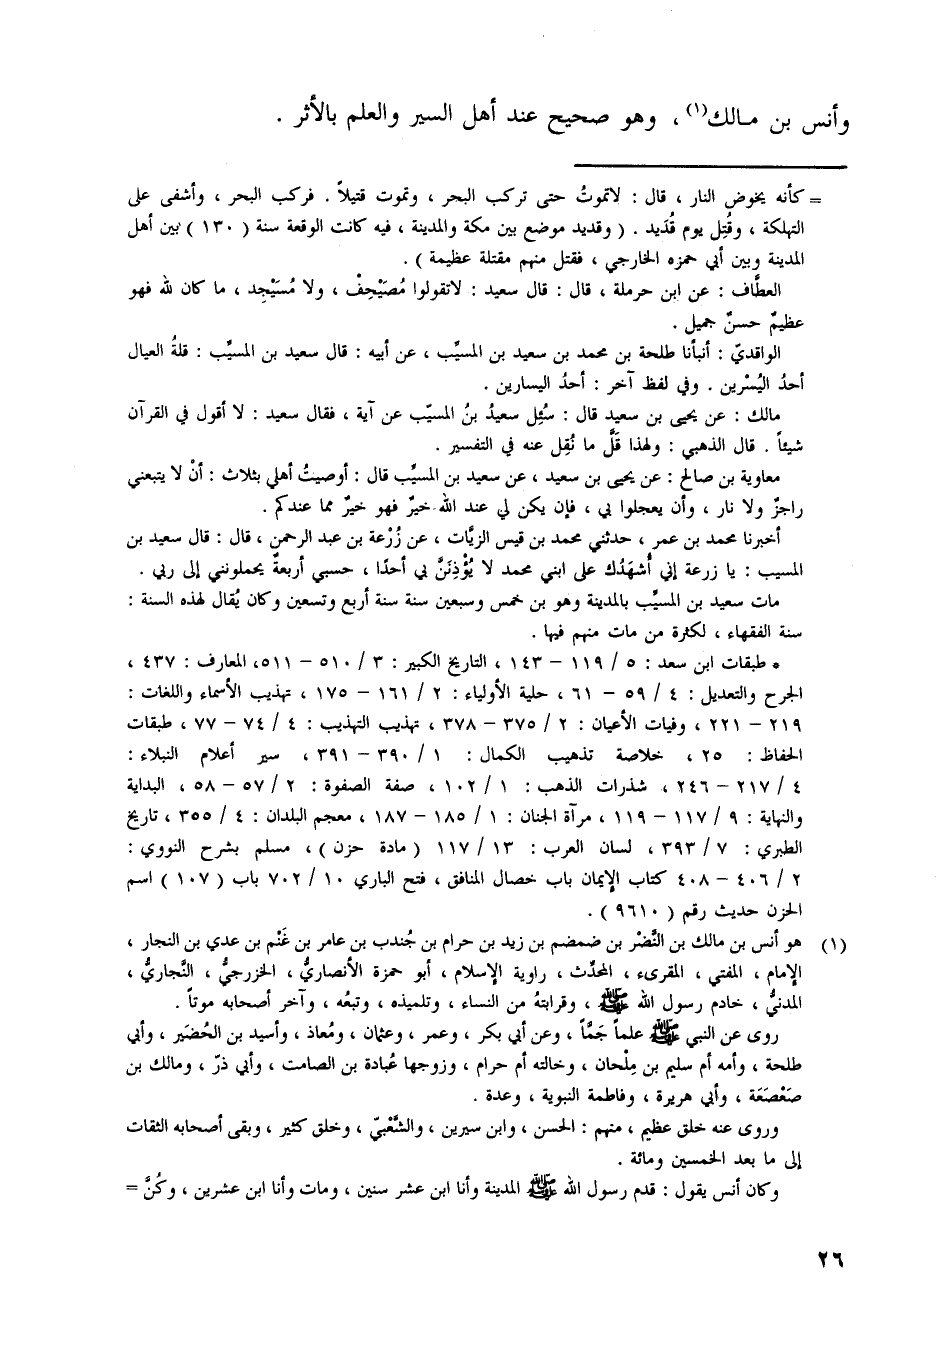 وأنس بن مالك(١) ، وهو صحيح عند أهل السير والعلم بالأثر .
= كأنه يخوض النار ، قال : لاتموتُ حتى تركب البحر ، وتموت قتيلاً . فركب البحر ، وأشفى على
التهلكة ، وقُتِل يوم قُدَيد . ( وقديد موضع بين مكة والمدينة ، فيه كانت الوقعة سنة ( ١٣٠ ) بين أهل
المدينة وبين أبي حمزه الخارجي ، فقتل منهم مقتلة عظيمة ) .
العطَّاف : عن ابن حرملة ، قال : قال سعيد : لاتقولوا مُصَيْحِفْ ، ولا مُسَيْجِد ، ما كان لله فهو
عظيمٌ حسنٌ جميل .
الواقديّ : أنبأنا طلحة بن محمد بن سعيد بن المسيِّب ، عن أبيه : قال سعيد بن المسيِّب : قلةُ العيال
أحدُ اليُسْرين . وفي لفظ آخر : أحدُ اليسارين .
مالك : عن يحيى بن سعيد قال : سُئِل سعيدُ بنُ المسيّب عن آية ، فقال سعيد : لا أقول في القرآن
شيئاً . قال الذهبي : ولهذا قَلَّ ما نُقِل عنه في التفسير .
معاوية بن صالح : عن يحيى بن سعيد ، عن سعيد بن المسيِّب قال : أوصيتُ أهلي بثلاث : أنْ لا يتبعني
راجزٌ ولا نار ، وأن يعجلوا بي ، فإن يكن لي عند الله خيرٌ فهو خيرٌ مما عندكم .
أخبرنا محمد بن عمر ، حدثني محمد بن قيس الزيَّات ، عن زُرْعة بن عبد الرحمن ، قال : قال سعيد بن
المسيب : يا زرعة إني أُشهَدُك على ابني محمد لا يُؤْذِنَنَّ بي أحدًا ، حسبي أربعةٌ يحملونني إلى ربي .
مات سعيد بن المسيِّب بالمدينة وهو بن خمس وسبعين سنة سنة أربع وتسعين وكان يُقال لهذه السنة :
سنة الفقهاء ، لكثرة من مات منهم فيها .
* طبقات ابن سعد : ٥ / ١١٩ – ١٤٣ ، التاريخ الكبير : ٣ / ٥١٠ – ٥١١ ، المعارف : ٤٣٧ ،
الجرح والتعديل : ٤ / ٥٩ – ٦١ ، حلية الأولياء : ٢ / ١٦١ – ١٧٥ ، تهذيب الأسماء واللغات :
٢١٩ – ٢٢١ ، وفيات الأعيان : ٢ / ٣٧٥ – ٣٧٨ ، تهذيب التهذيب : ٤ / ٧٤ – ٧٧ ، طبقات
الحفاظ : ٢٥ ، خلاصة تذهيب الكمال : ١ / ٣٩٠ – ٣٩١ ، سير أعلام النبلاء :
٤ / ٢١٧ – ٢٤٦ ، شذرات الذهب : ١ / ١٠٢ ، صفة الصفوة : ٢ / ٥٧ – ٥٨ ، البداية
والنهاية : ٩ / ١١٧ – ١١٩ ، مرآة الجنان : ١ / ١٨٥ – ١٨٧ ، معجم البلدان : ٤ / ٣٥٥ ، تاريخ
الطبري : ٧ / ٣٩٣ ، لسان العرب : ١٣ / ١١٧ ( مادة حزن ) ، مسلم بشرح النووي :
٢ / ٤٠٦ – ٤٠٨ كتاب الإيمان باب خصال المنافق ، فتح الباري ١٠ / ٧٠٢ باب ( ١٠٧ ) اسم
الحزن حديث رقم ( ٩٦١٠ ) .
(١) هو أنس بن مالك بن النَّضْر بن ضمضم بن زيد بن حرام بن جُندب بن عامر بن غَنْم بن عدي بن النجار ،
الإمام ، المفتي ، المقرىء ، المحدِّث ، راوية الإسلام ، أبو حمزة الأنصاريُّ ، الخزرجيُّ ، النَّجاريُّ ،
المدنيُّ ، خادم رسول الله ﷺ ، وقرابتهُ من النساء ، وتلميذه ، وتبعُه ، وآخر أصحابه موتاً .
روى عن النبي ﷺ علماً جَمّاً ، وعن أبي بكر ، وعمر ، وعثمان ، ومُعاذ ، وأسيد بن الحُضَير ، وأبي
طلحة ، وأمه أم سليم بن مِلْحان ، وخالته أم حرام ، وزوجها عُبادة بن الصامت ، وأبي ذرّ ، ومالك بن
صَعْصَعَة ، وأبي هريرة ، وفاطمة النبوية ، وعدة .
وروى عنه خلق عظيم ، منهم : الحسن ، وابن سيرين ، والشَّعْبيّ ، وخلق كثير ، وبقى أصحابه الثقات
إلى ما بعد الخمسين ومائة .
وكان أنس يقول : قدم رسول الله ﷺ المدينة وأنا ابن عشر سنين ، ومات وأنا ابن عشرين ، وكُنَّ =
٢٦